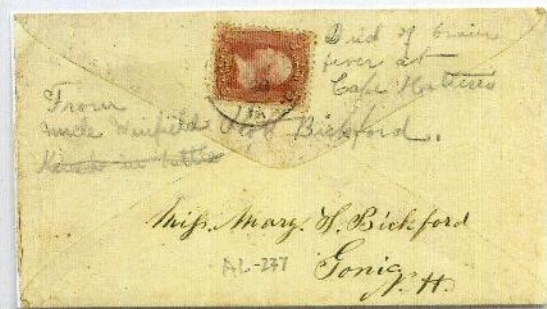 Died of brain
fever at
Cape Hatteras
From
Uncle Winfield Scott Bickford.
Killed in battle
Miss. Mary. H. Bickford
AL-247
Gonic
N.H.